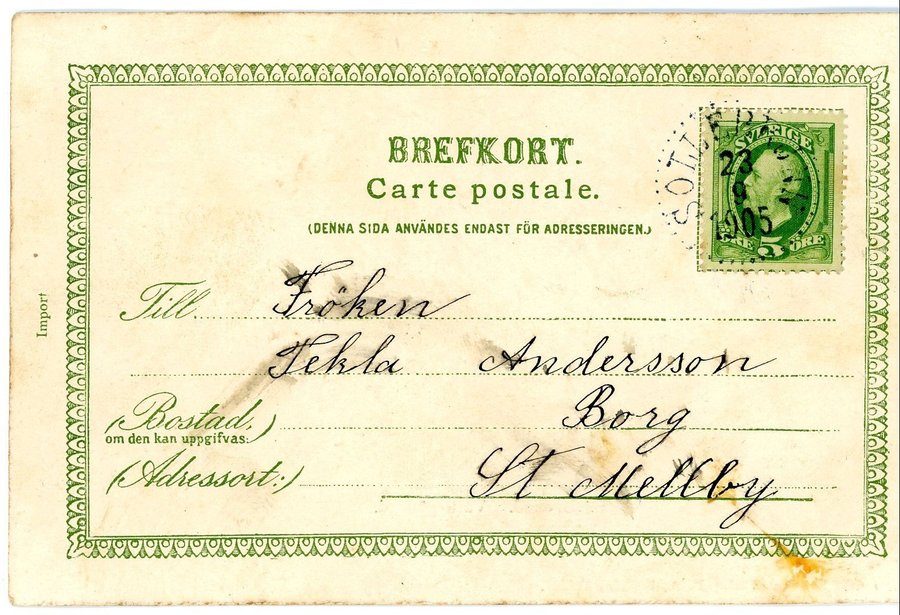 BREFKORT.
Carte postale.
(DENNA SIDA ANVÄNDES ENDAST FÖR ADRESSERINGEN.)
SVERIGE
23
9
1905
ÖRE 5 ÖRE
Import
Till Fröken
Tekla Andersson
(Bostad,
om den kan uppgifvas:)
Borg
(Adressort:)
St Mellby